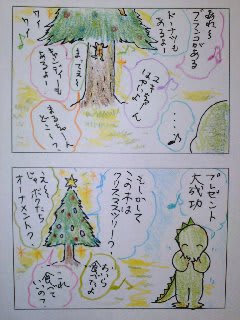 あれ〜
ブランコがある
ドーナツも
あるよー
ユキちゃん
はやいよ〜
まってぇ〜
キャンディーも
あるよー
まるちゃ〜ん
どこ〜?
プレゼント
大成功
もしかして
この木は
クリスマスツリー?
え〜
じゃボクたち
オーナメント?
おいら
食べたよ
これ
食べて
いいの?